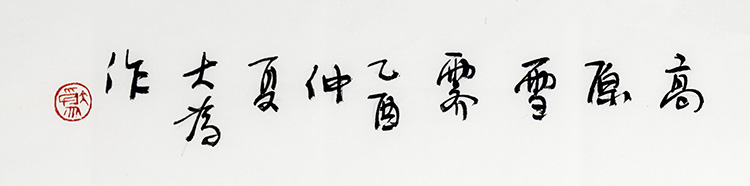 高原雪霁乙酉仲夏大為作